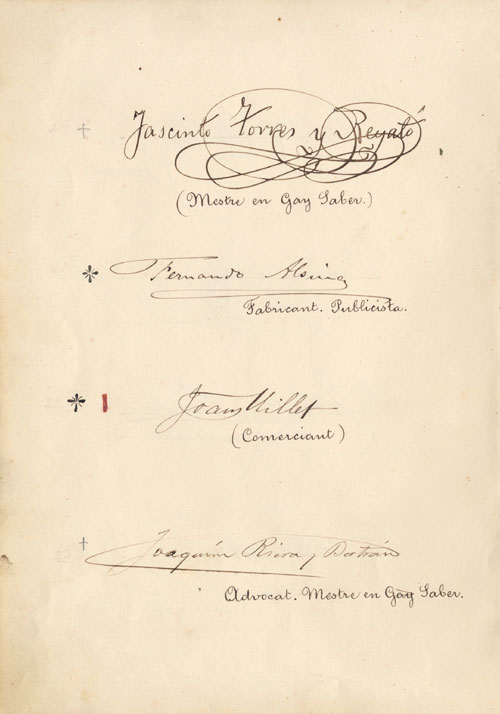 Jascinto Torres y Reyató
(Mestre en Gay Saber.)
Fernando Alsina
Fabricant. Publicista.
Joan Millet
(Comerciant)
Joaquim Riera y Bertrán
Advocat. Mestre en Gay Saber.